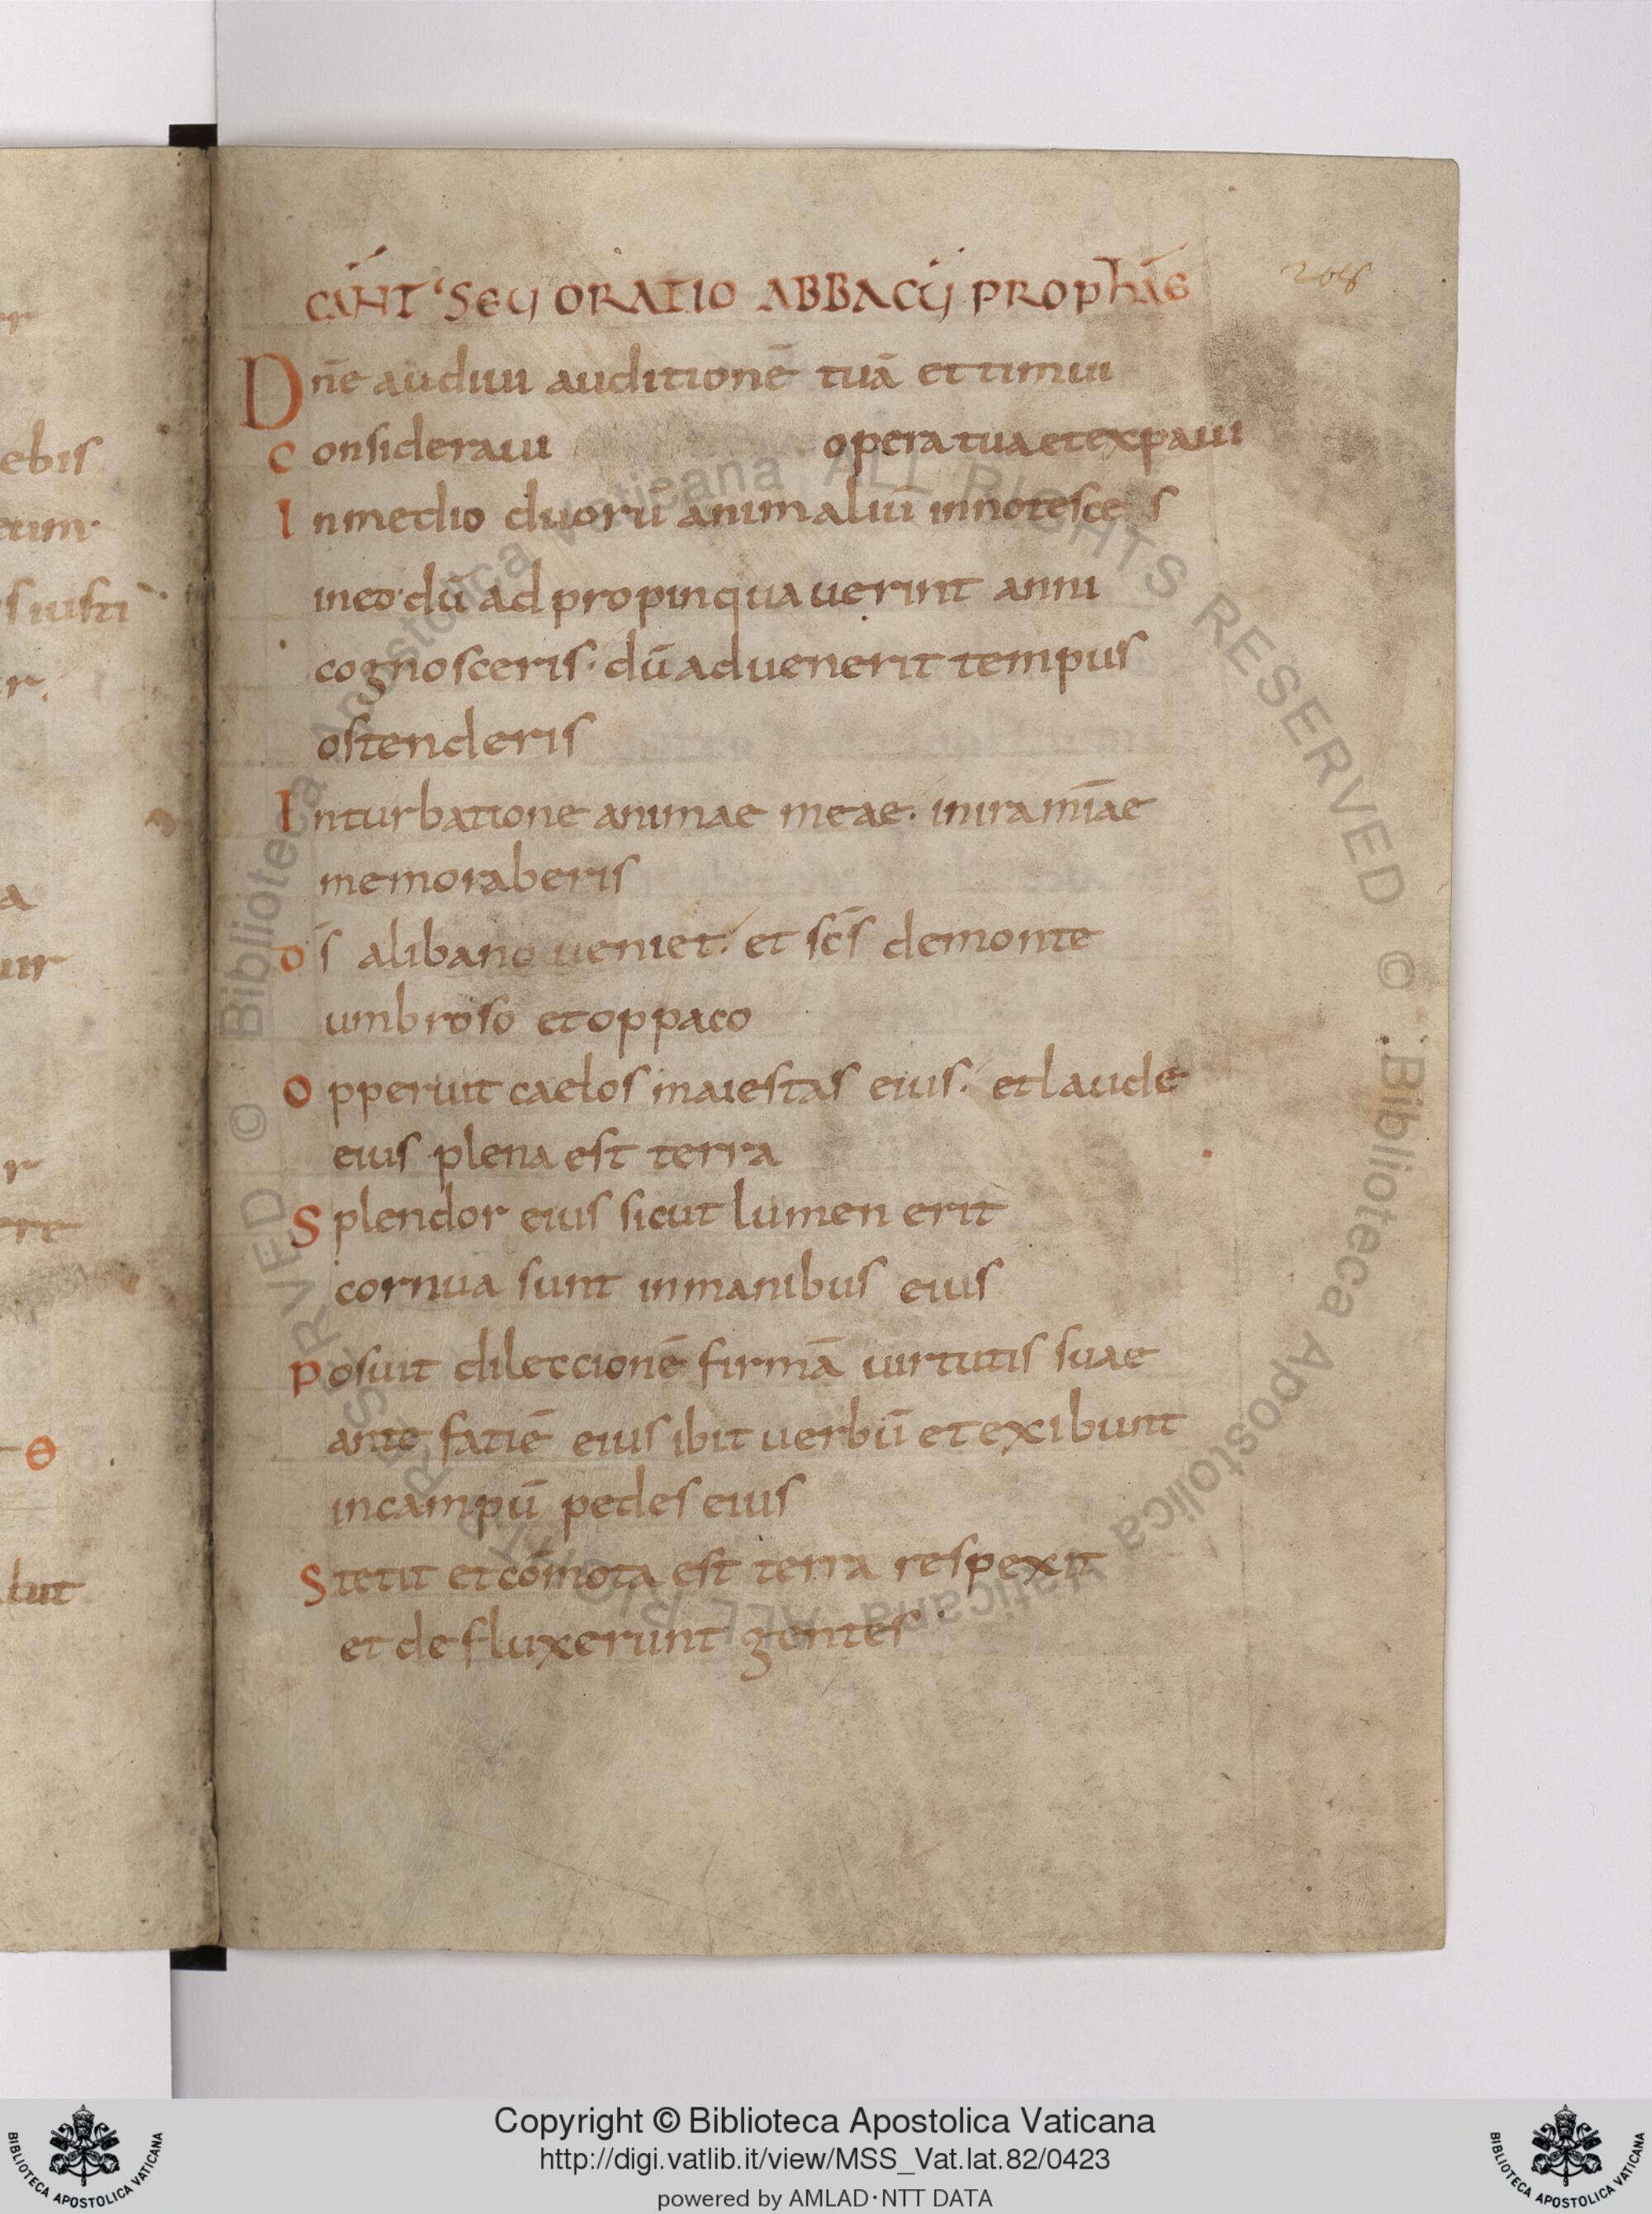 CAŃT SEU ORATIO ABBACU PROPHAE
Dn̄e audiui auditionē tuā et timui
consideraui opera tua et expaui
In medio duorū animaliū innotesce s
in eo· dū adpropinquauerint anni
cognosceris· dū aduenerit tempus
ostenderis
In turbatione animae meae· in ira mīae
memoraberis
Ds̄ a libano ueniet· et scs̄ de monte
umbroso et oppaco
Opperuit caelos maiestas eius· et laude
eius plena est terra
Splendor eius sicut lumen erit
cornua sunt in manibus eius
Posuit dileccionē firmā uirtutis suae
ante fatiē eius ibit uerbū et exibunt
in campū pedes eius
Stetit et com̄ota est terra respexit
et defluxerunt gentes
ebis
s iusti
r
a
uir
r
ere
lut
© Biblioteca Apostolica Vaticana ALL RIGHTS RESERVED © Biblioteca Apostolica Vaticana ALL RIGHTS RESERVED
Copyright © Biblioteca Apostolica Vaticana
http://digi.vatlib.it/view/MSS_Vat.lat.82/0423
powered by AMLAD·NTT DATA
BIBLIOTECA APOSTOLICA VATICANA
BIBLIOTECA APOSTOLICA VATICANA